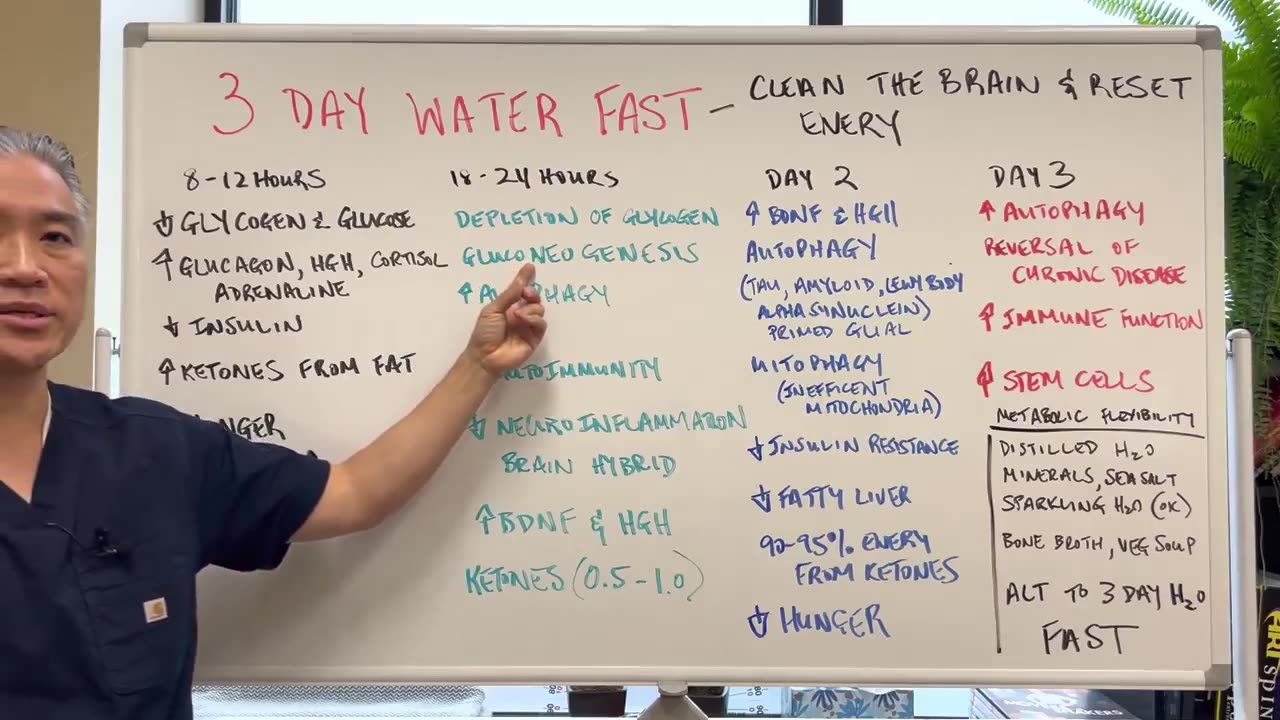 3 DAY WATER FAST - CLEAN THE BRAIN & RESET
ENERY
8-12 HOURS
↓ GLYCOGEN & GLUCOSE
↑ GLUCAGON, HGH, CORTISOL
ADRENALINE
↓ INSULIN
↑ KETONES FROM FAT
18-24 HOURS
DEPLETION OF GLYCOGEN
GLUCONEO GENESIS
↓ NEUROINFLAMMATION
BRAIN HYBRID
↑ BDNF & HGH
KETONES (0.5-1.0)
DAY 2
↑ BDNF & HGH
AUTOPHAGY
(TAU, AMYLOID, LEWY BODY
ALPHASYNUCLEIN)
PRIMED GLIAL
MITOPHAGY
(INEFFICENT
MITOCHONDRIA)
↓ INSULIN RESISTANCE
↓ FATTY LIVER
90-95% ENERY
FROM KETONES
↓ HUNGER
DAY 3
↑ AUTOPHAGY
REVERSAL OF
CHRONIC DISEASE
↑ IMMUNE FUNCTION
↑ STEM CELLS
METABOLIC FLEXIBILITY
DISTILLED H2O
MINERALS, SEA SALT
SPARKLING H2O (OK)
BONE BROTH, VEG SOUP
ALT TO 3 DAY H2O
FAST